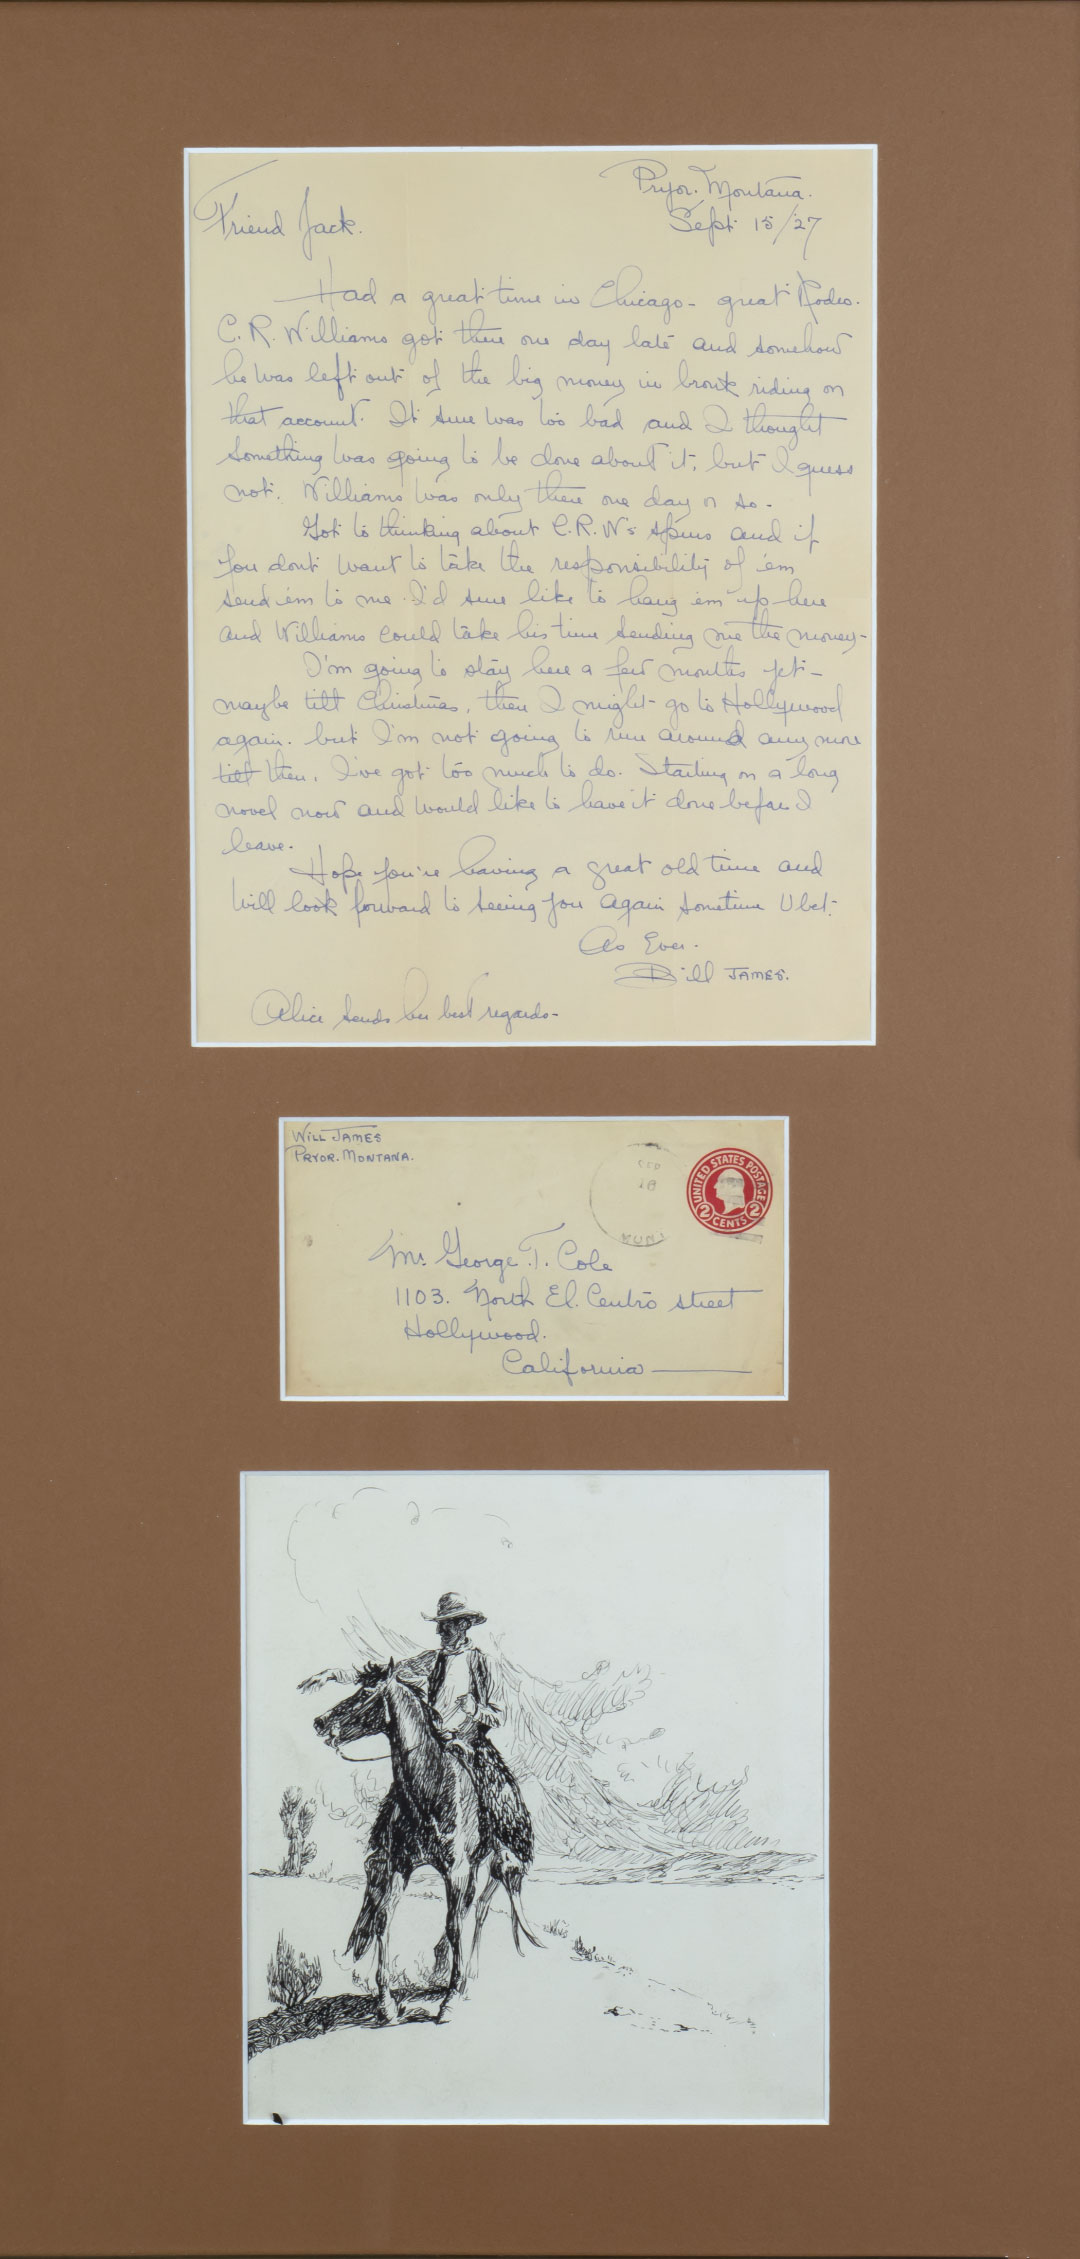 Pryor. Montana.
Sept. 15/27
Friend Jack.
Had a great time in Chicago - great Rodeo.
C. R. Williams got there one day late and somehow
he was left out of the big money in bronk riding on
that account. It sure was too bad and I thought
something was going to be done about it, but I guess
not. Williams was only there one day or so -
Got to thinking about C.R.W's spurs and if
you dont want to take the responsibility of 'em
send 'em to me. I'd sure like to hang 'em up here
and Williams could take his time sending me the money -
I'm going to stay here a few months yet -
maybe till Christmas, then I might go to Hollywood
again. but I'm not going to run around any more
till then, I've got too much to do. Starting on a long
novel now and would like to have it done before I
leave.
Hope you're having a great old time and
will look forward to seeing you again sometime U bet.
As Ever.
Bill JAMES.
Alice sends her best regards -
WILL JAMES
PRYOR. MONTANA.
SEP
18
MONT
UNITED STATES POSTAGE
2 CENTS 2
Mr. George T. Cole
1103. North El. Centro street
Hollywood.
California